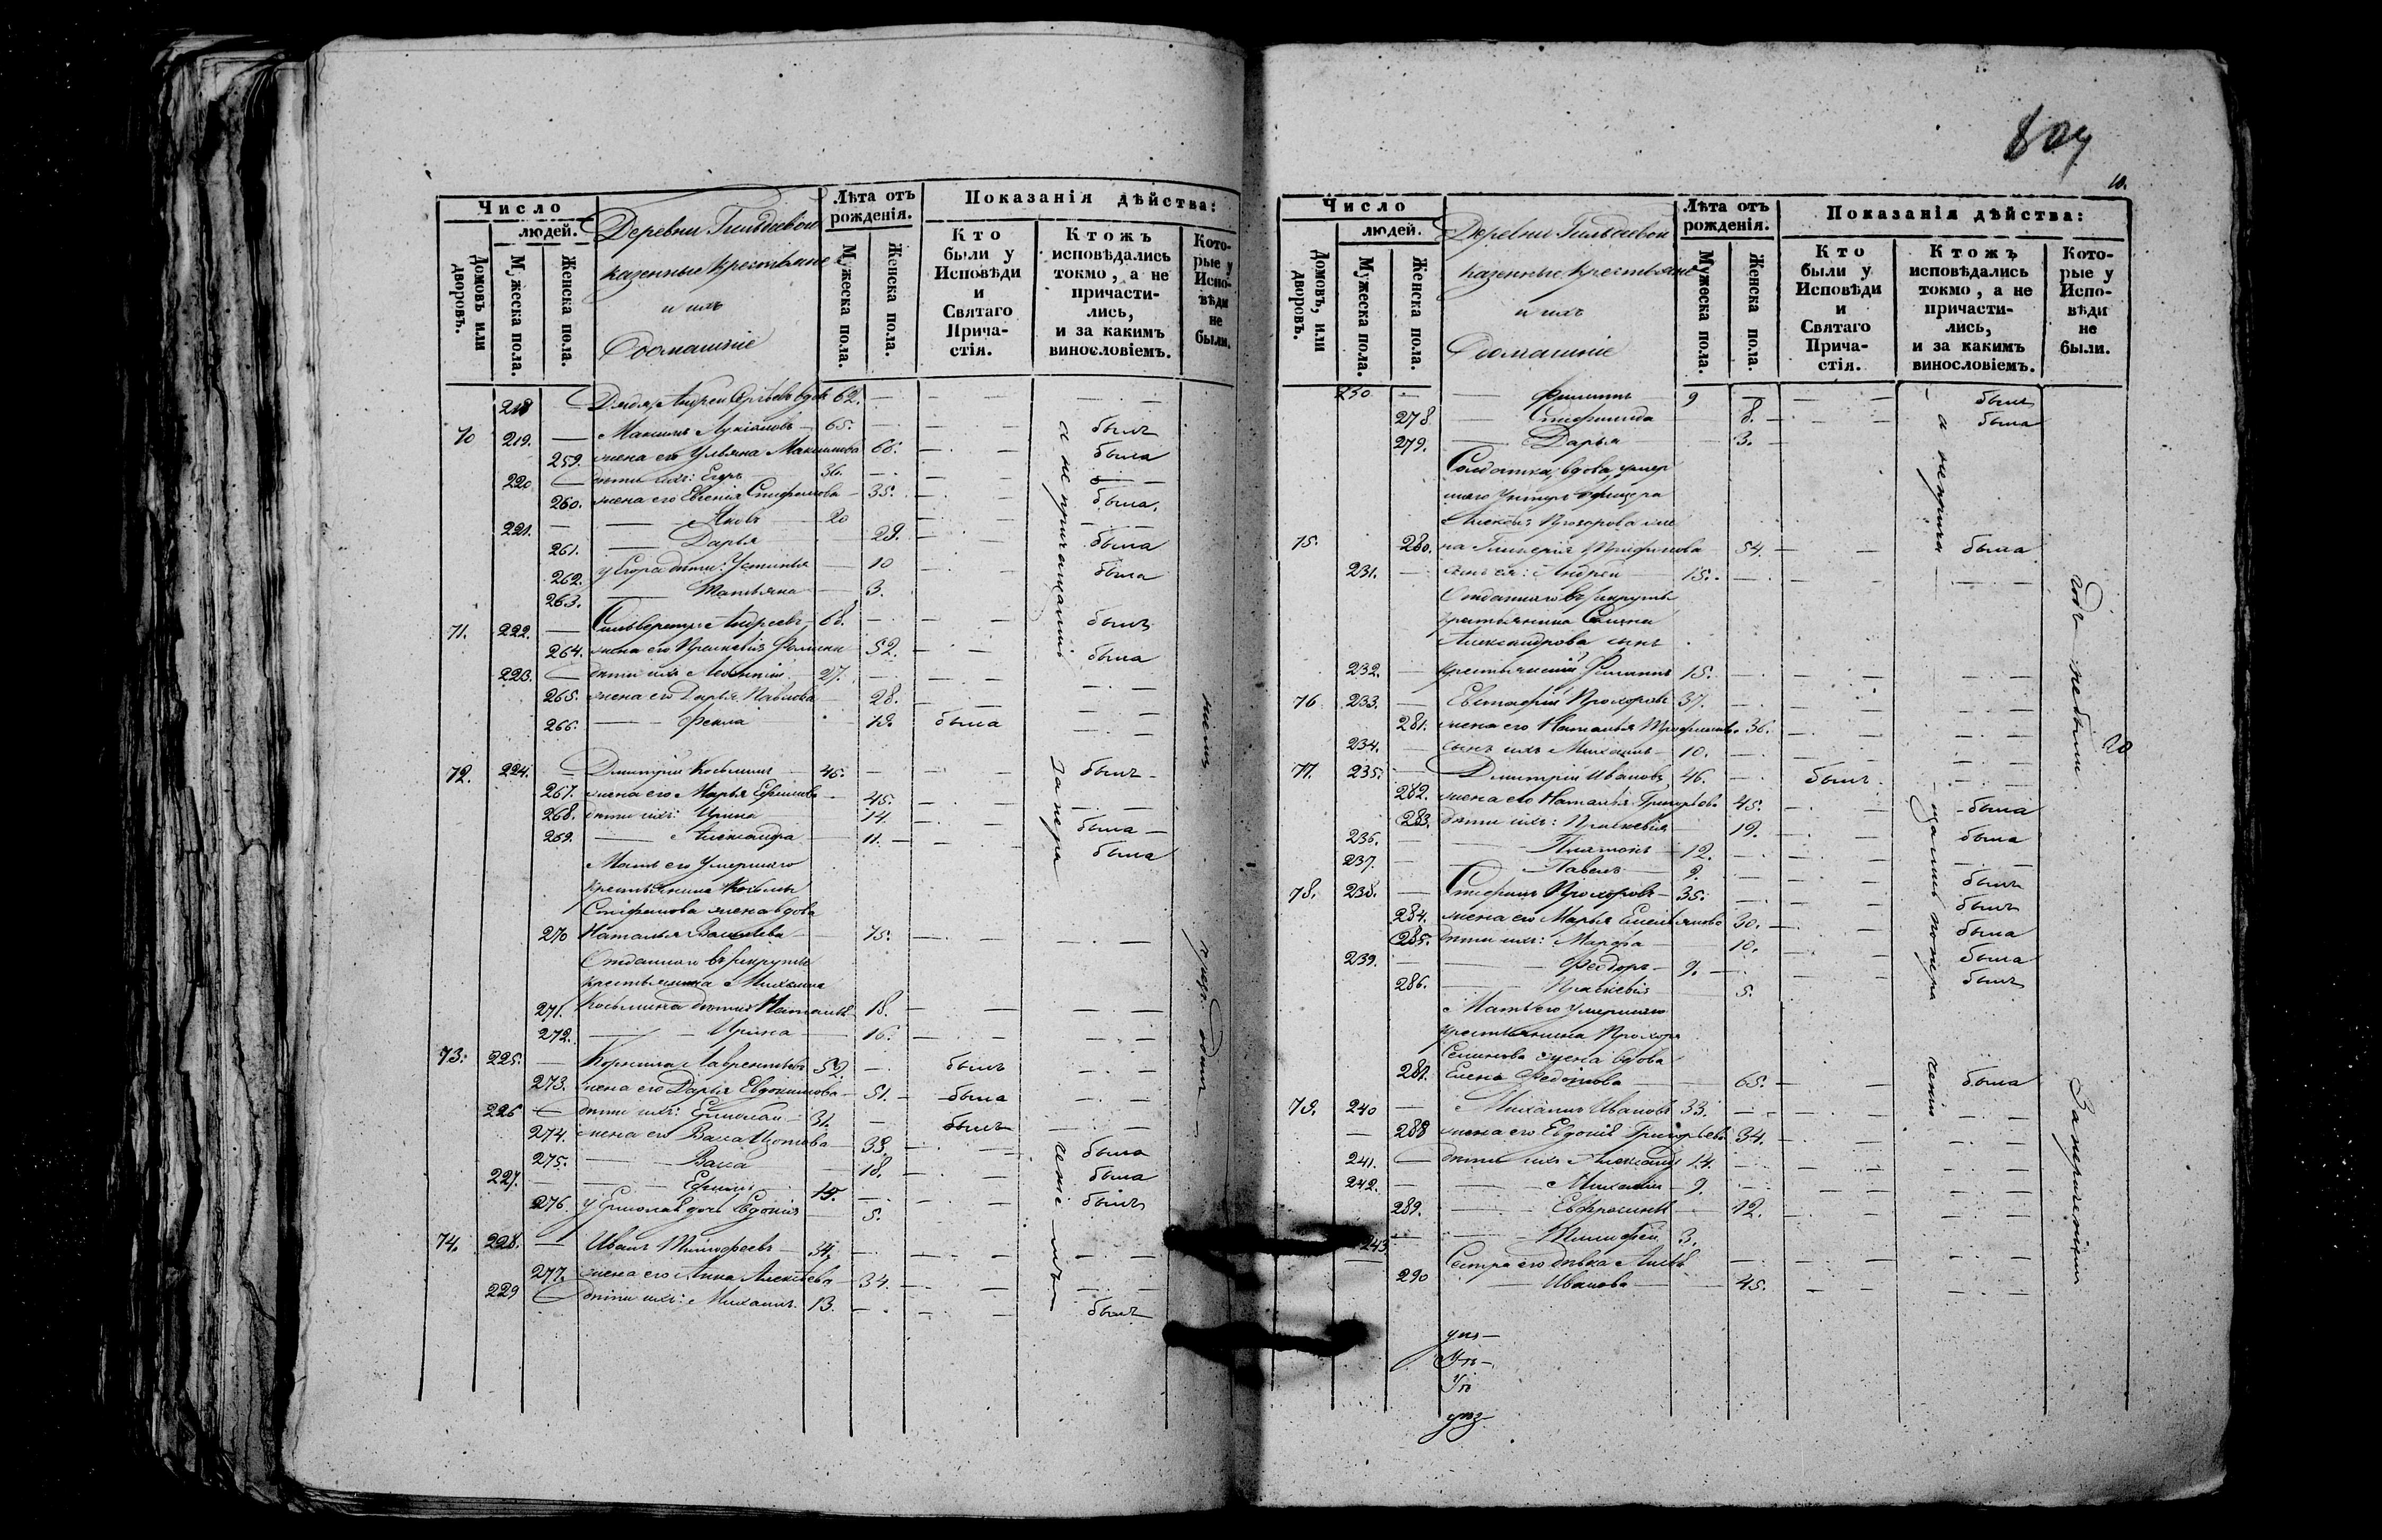 Число
людей.
Домовъ или дворовъ.
Мужеска пола.
Женска пола.
Деревни Гильдеевой
казенные крестьяне
и ихъ
домашніе
Лѣта отъ рожденія.
Мужеска пола.
Женска пола.
Показанія дѣйства:
Кто были у Исповѣди и Святаго Причастія.
Ктожъ исповѣдались токмо, а не причастились, и за какимъ винословіемъ.
Которые у Исповѣди не были.
218 — Дядя Андрей Сергѣевъ вдов 62. — — —
70 219. — Максимъ Лукіановъ — 65. — — — былъ
259. жена его Ульяна Максимова 66. — — была
220 — дѣти ихъ: Егоръ 36. — — —
260. жена его Евгенія Стефанова — 35. — — была.
221. — — Яковъ — 20 — — —
261. — Дарья 23. — — была
262. у Егора дѣти: Устинья — 10 — — была
263. — Татьяна — 3.
71. 222. — Сильверстръ Андреевъ — 68. — — — былъ
264. жена его Праскевія 52. — — была
223. — дѣти ихъ Леонтій — 27. — — —
265. жена его Дарья Павлова 28. — — —
266. — — Фекла — 19. была — —
72. 224. — Дмитрій Косьминъ 46. — — — былъ —
267. жена его Марья Ефимова — 45. — — —
268. дѣти ихъ: Ирина 14 — — была —
269. — Александра — 11. — — была
Мать его умершаго
крестьянина Косьмы
Стефанова жена вдова
270 Наталья Васильева — 75. — — — —
Отданнаго въ рекруты
крестьянина Михаила
271. Косьмина дочь Наталья — 18. — — — —
272. — — Ирина — 16. — — — —
73. 225. — Корнила Лаврентьевъ 52. — былъ — —
273. жена его Дарья Евдокимова — 51. — была — —
226 — дѣти ихъ: Ермолай — 31. — былъ — —
274. жена его Васса Изотова — 33. — — была
275. — — Васса — 18. — — была
227. — — Ефимъ 15. — — — былъ
276. у Ермолая дочь Евдокія 5.
74. 228. — Иванъ Тимофеевъ — 34. — — — —
277. жена его Анна Алексѣева — 34. — — — —
229 — дѣти ихъ: Михаилъ. 13. — — — былъ
а не причащались
за нера
ченіемъ
804
10.
Число
людей.
Домовъ, или дворовъ.
Мужеска пола.
Женска пола.
Деревни Гильдеевой
казенные крестьяне
и ихъ
домашніе
Лѣта отъ рожденія.
Мужеска пола.
Женска пола.
Показанія дѣйства:
Кто были у Исповѣди и Святаго Причастія.
Ктожъ исповѣдались токмо, а не причастились, и за какимъ винословіемъ.
Которые у Исповѣди не были.
230 — — Филиппъ 9 — — — былъ
278 — Стефанида 8. — — была
279. — Дарья — 3. —
Солдатка, вдова, умер
шаго Унтеръ офицера
Алексѣя Прохорова же
75. 280. на Гликерія Трифонова 54. — — — была
231. — сынъ ея: Андрей — 15. — — —
Отданнаго въ рекруты
крестьянина
Александрова сынъ
232. — крестьянскій Филиппъ 15. — — —
76 233. — Евстафій Прохоровъ 37. — — —
281. жена его Наталья Трофимова. 36. — — —
234. — сынъ ихъ Михаилъ — 10. — — —
77. 235. — Дмитрій Ивановъ 46. — былъ — —
282. жена его Наталья Григорьева 45. — — — была
283. дѣти ихъ: Праскевія 19. — — была
236. — — Платонъ — 12. — — —
237. — — Павелъ — 9. — — былъ
78. 238. — Стефанъ Прохоровъ — 35. — — былъ
284. жена его Марья Емельянова 30. — — была
285. дѣти ихъ: Марфа — 10. — — была
239. — — Феодоръ — 9. — — — былъ
286. — Праскевія 5.
Мать его умершаго
крестьянина Прохора
Семенова жена вдова
287. Елена Федотова — 65. — — была
79. 240 — Михаилъ Ивановъ 33. — — — —
— 288 жена его Евдокія Григорьева 34. — — —
241. — дѣти ихъ Александръ 14. — — — —
242. — — Михаилъ — 9. — — — —
289. — — Евфросинья 12. — — —
243 — — Тимофей 3.
Сестра его дѣвка
290 — Иванова — 45. — — — —
а неприча
щались по нера
ченію
20